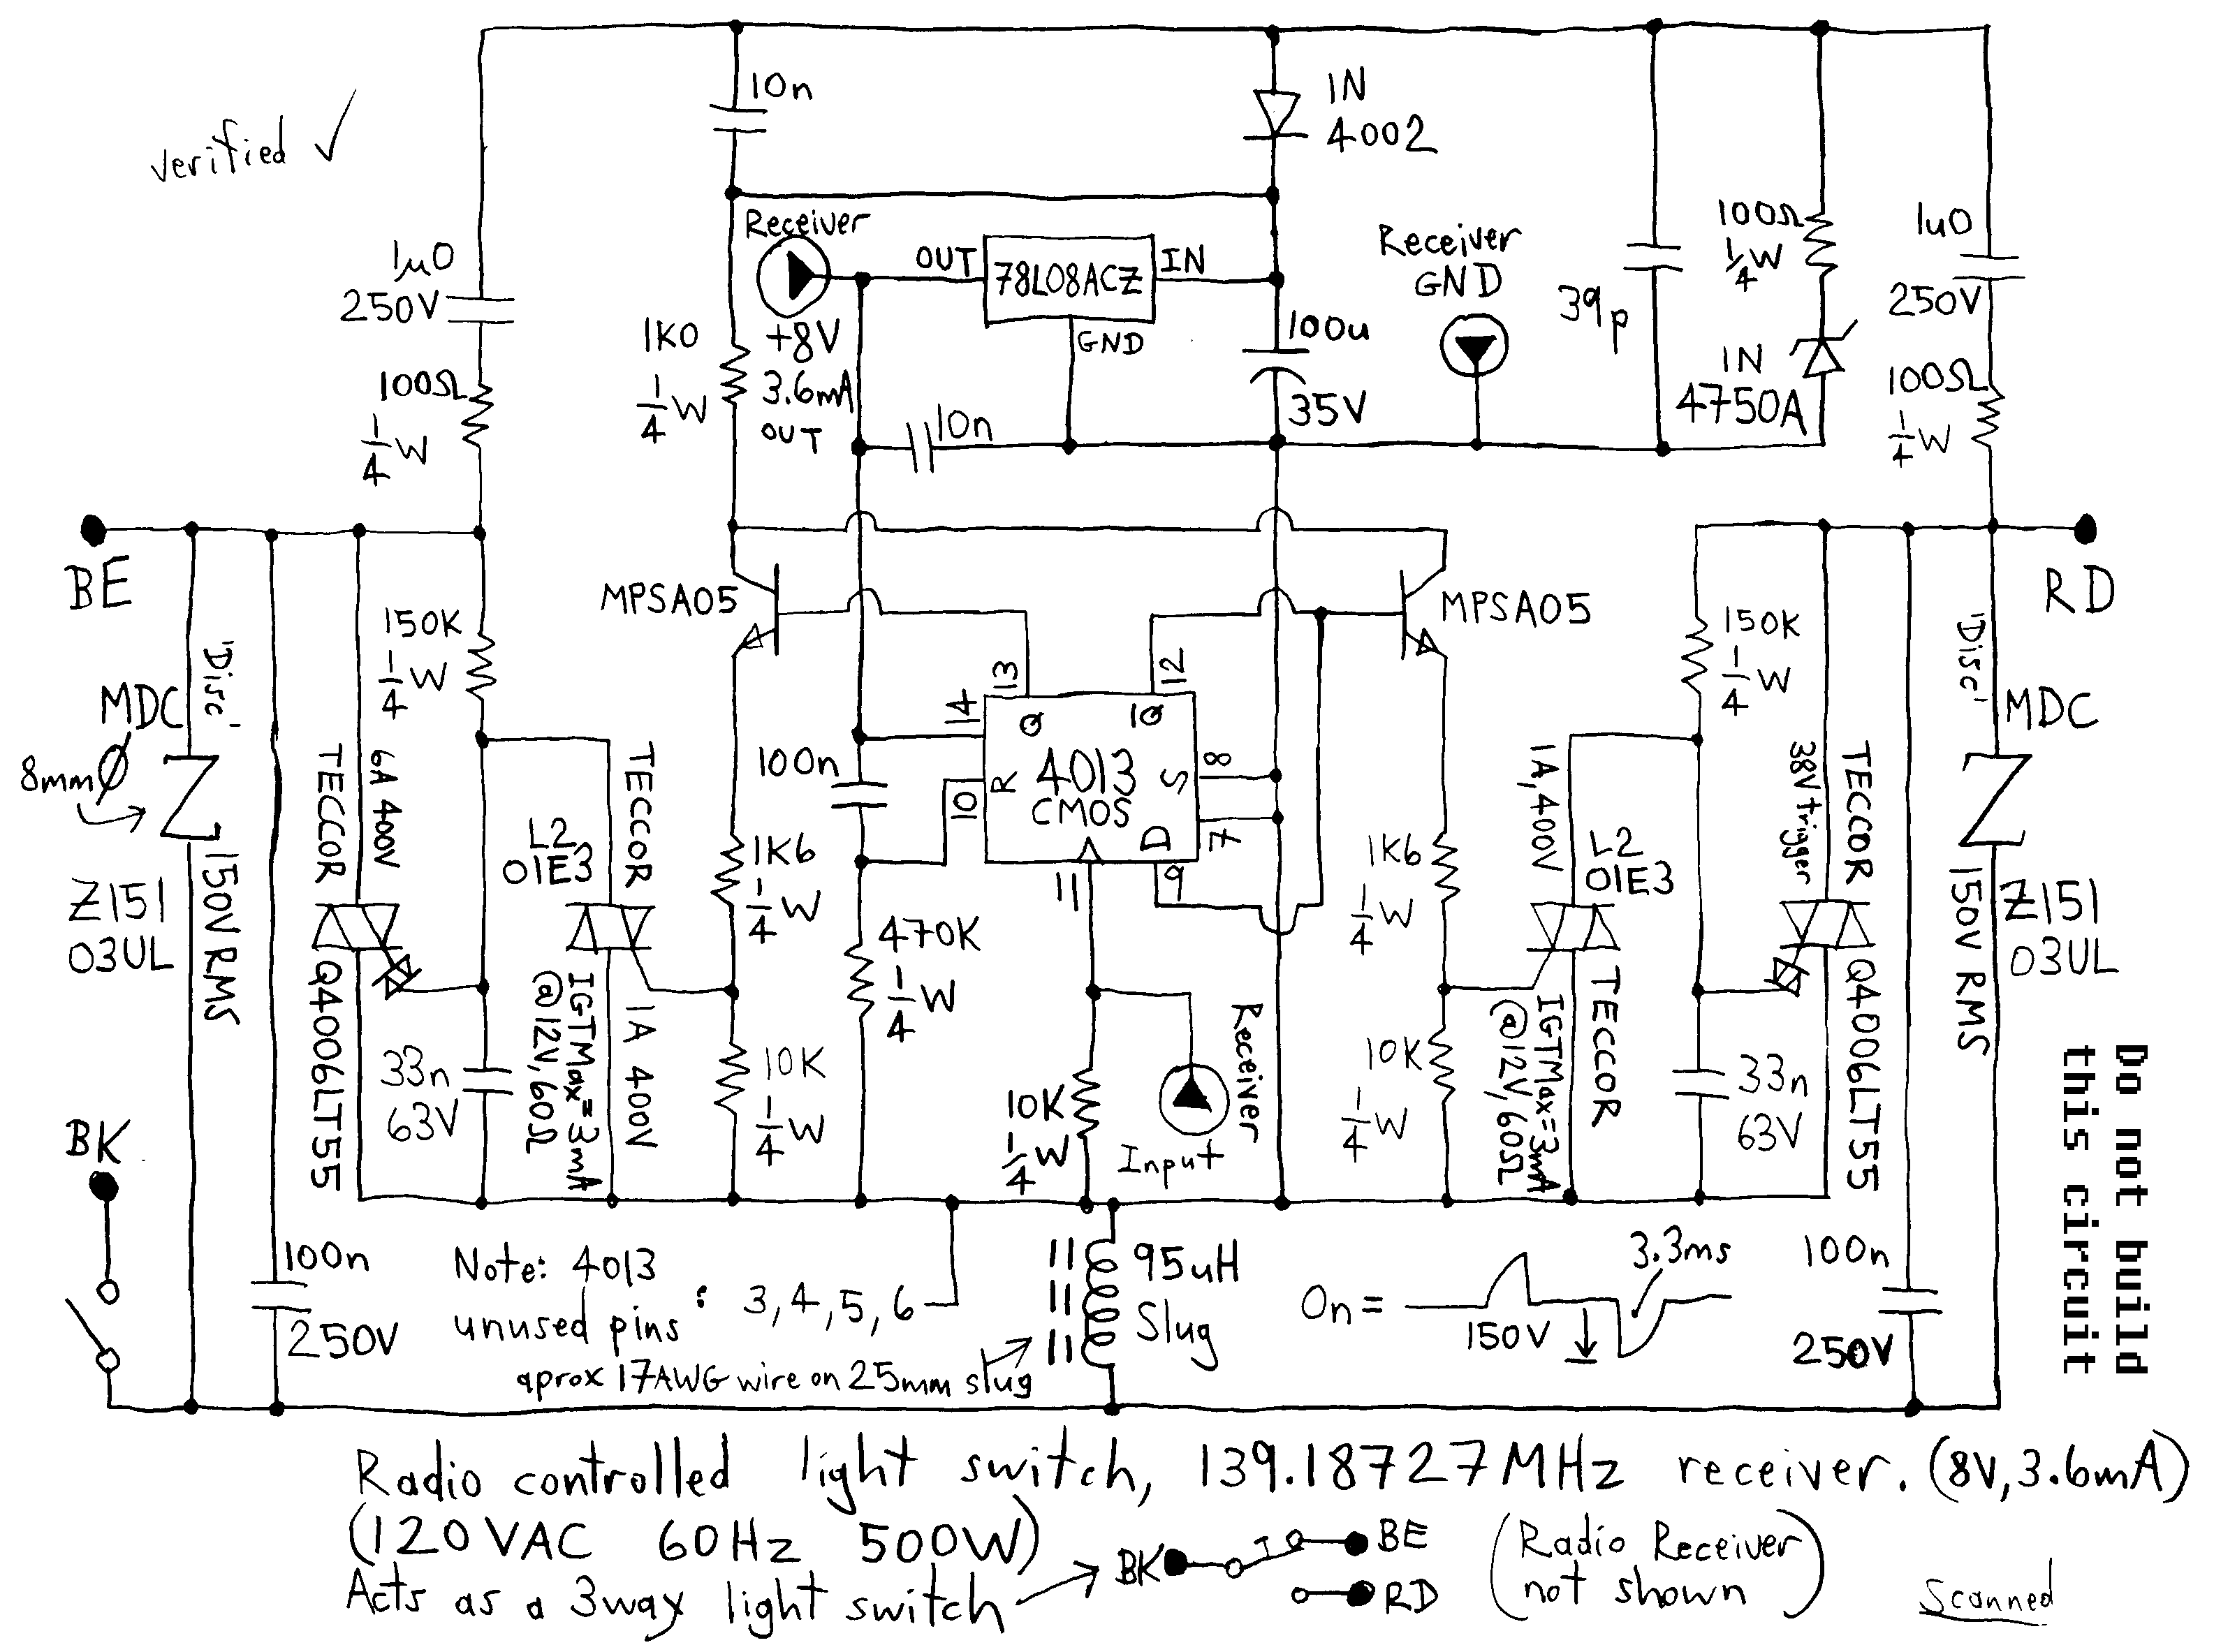 verified ✓
10n
1N
4002
1µ0
250V
100Ω
1/4W
1K0
1/4W
Receiver
+8V
3.6mA
OUT
OUT
78L08ACZ
IN
GND
10n
100u
35V
Receiver
GND
39p
100Ω
1/4W
1N
4750A
1u0
250V
100Ω
1/4W
BE
RD
"Disc"
MDC
8mmØ
Z151
03UL
150V RMS
TECCOR
6A 400V
Q4006LT55
150K
1/4W
L2
01E3
TECCOR
1A 400V
IGTMax=3mA
@12V,60Ω
33n
63V
MPSA05
1K6
1/4W
10K
1/4W
100n
470K
1/4W
14
13
12
10
11
9
8
7
Q
1Q
R
S
D
4013
CMOS
10K
1/4W
Receiver
Input
MPSA05
1K6
1/4W
10K
1/4W
1A,400V
L2
01E3
TECCOR
IGTMax=3mA
@12V,60Ω
150K
1/4W
38V trigger
TECCOR
Q4006LT55
33n
63V
"Disc"
MDC
Z151
03UL
150V RMS
Do not build
this circuit
BK
100n
250V
Note: 4013
unused pins : 3,4,5,6
aprox 17AWG wire on 25mm slug
95uH
Slug
On=
150V
3.3ms
100n
250V
Radio controlled light switch, 139.18727MHz receiver. (8V,3.6mA)
(120VAC 60Hz 500W)
Acts as a 3way light switch
BK
BE
RD
(Radio Receiver
not shown)
Scanned